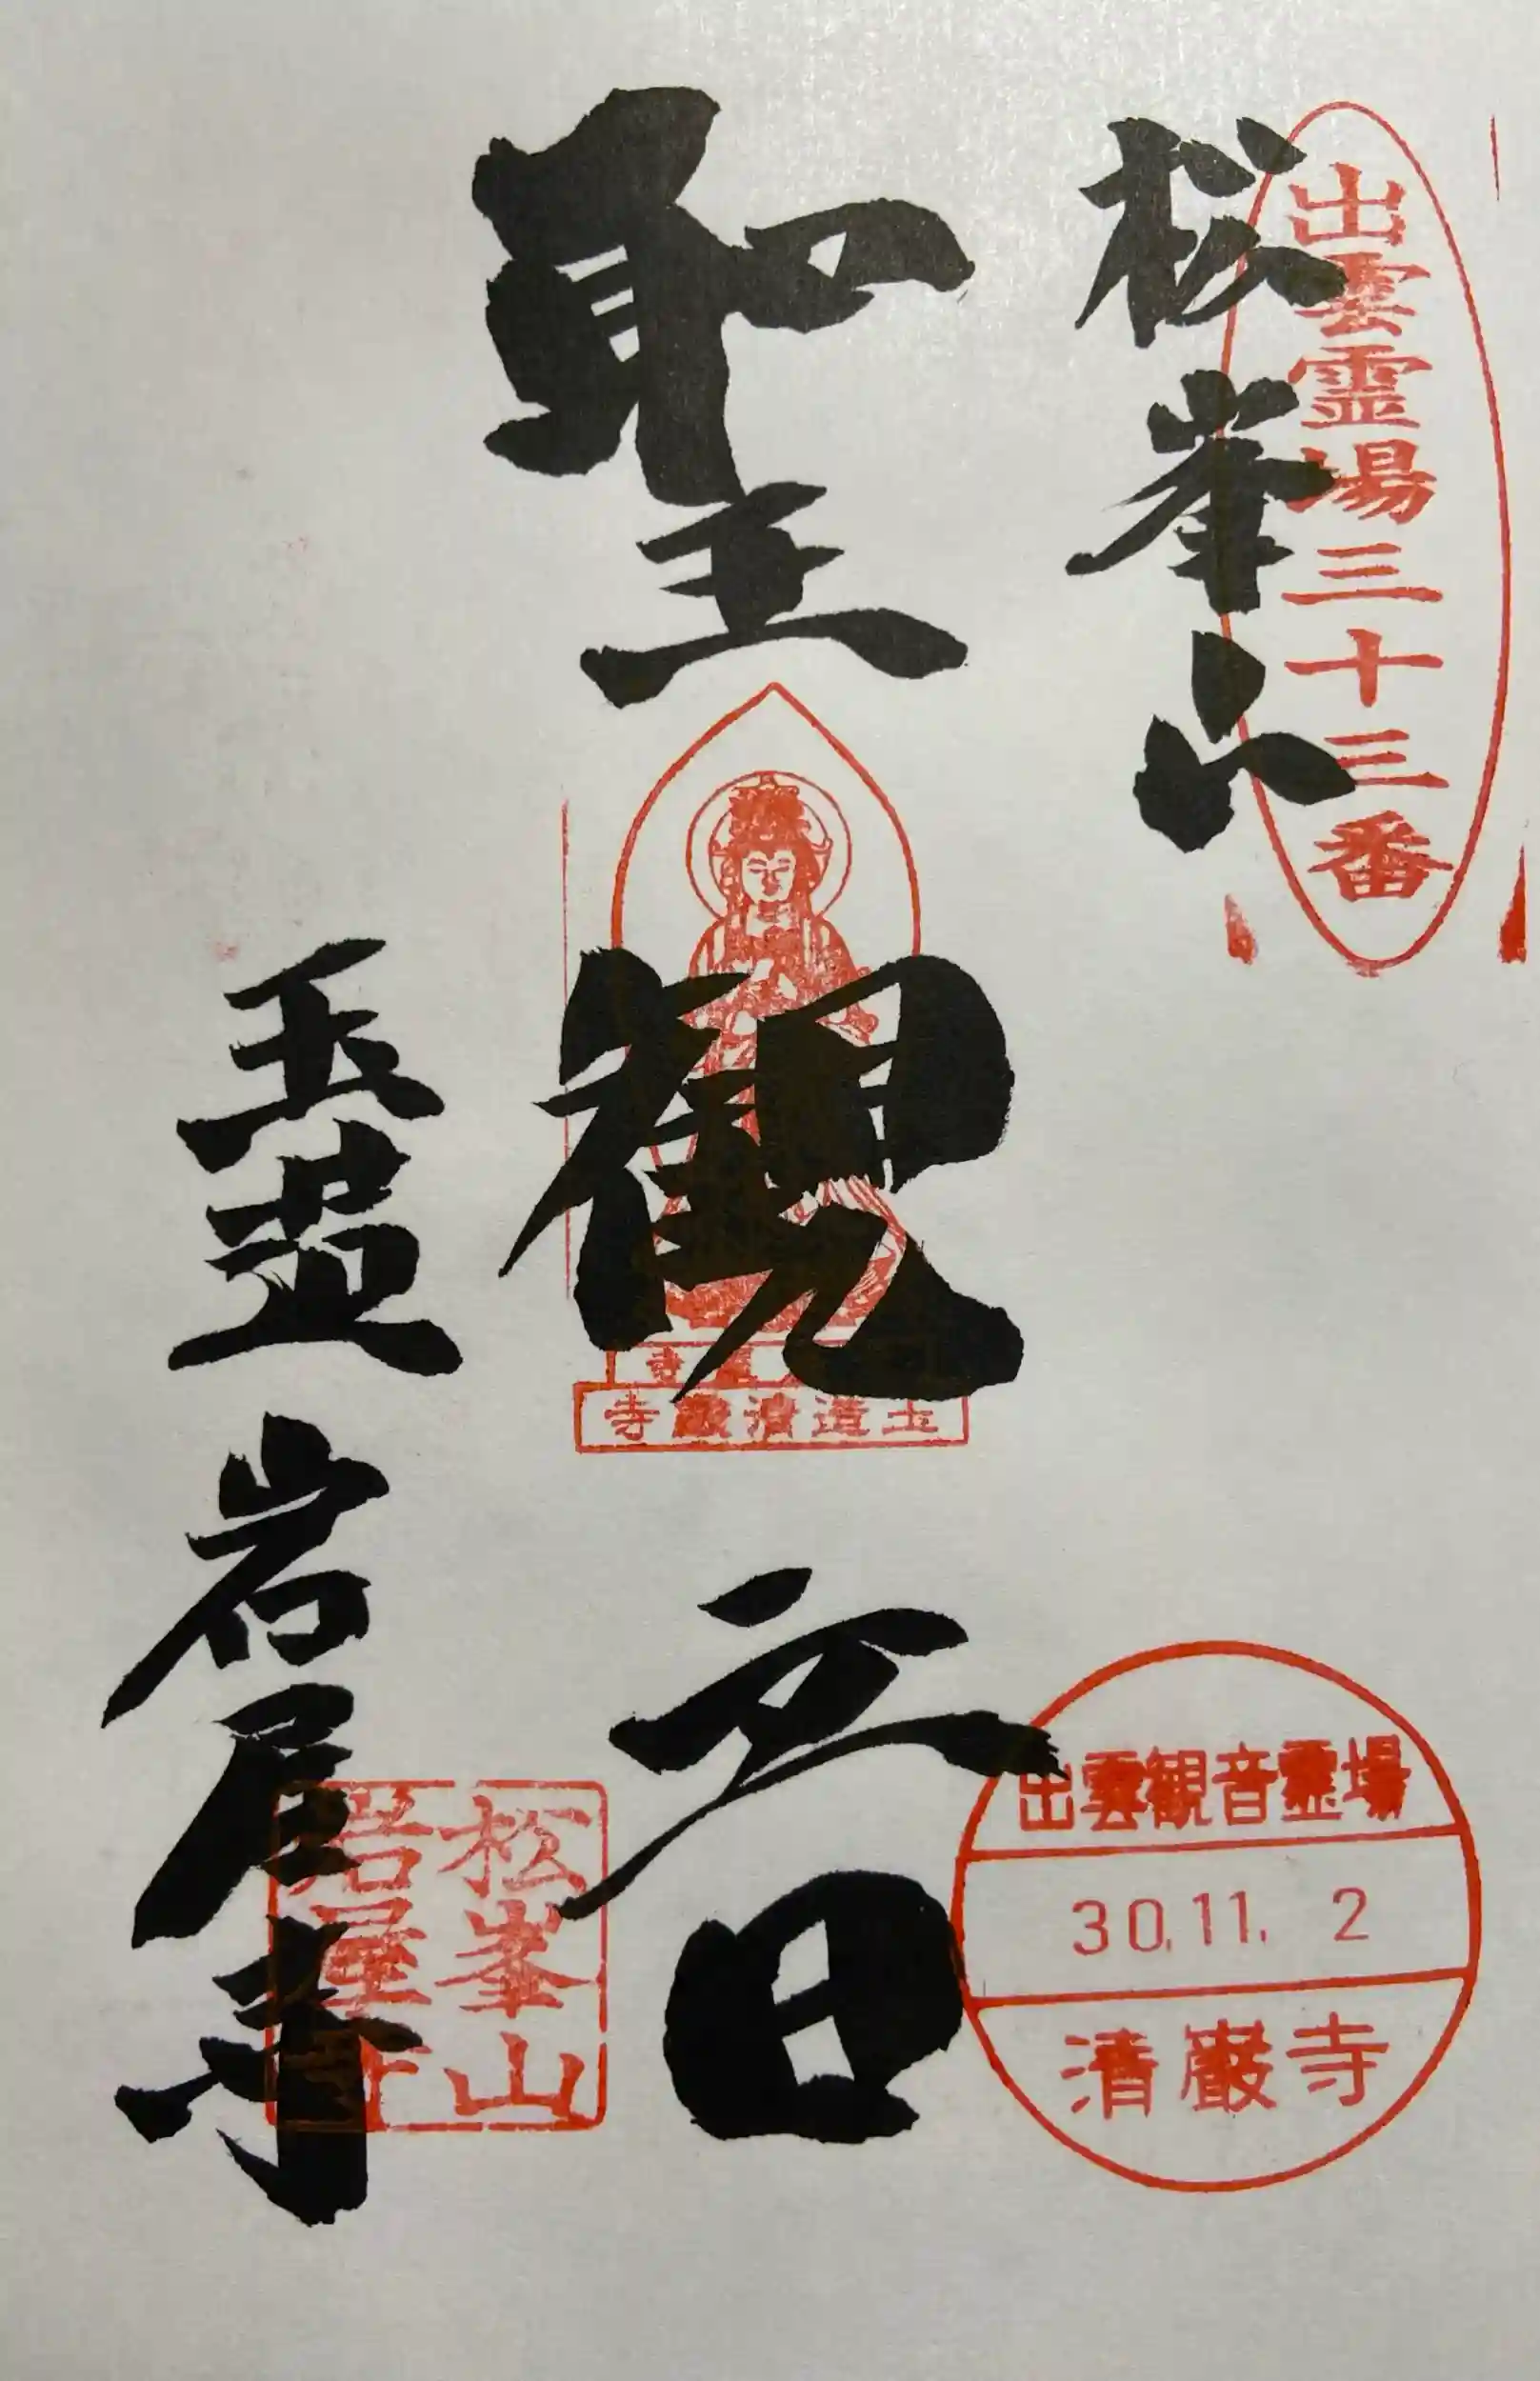 出雲霊場三十三番
松峯山
聖観音
出雲観音霊場
30.11. 2
清巖寺
玉造清巖寺
松峯山
岩屋寺
玉造 岩屋寺